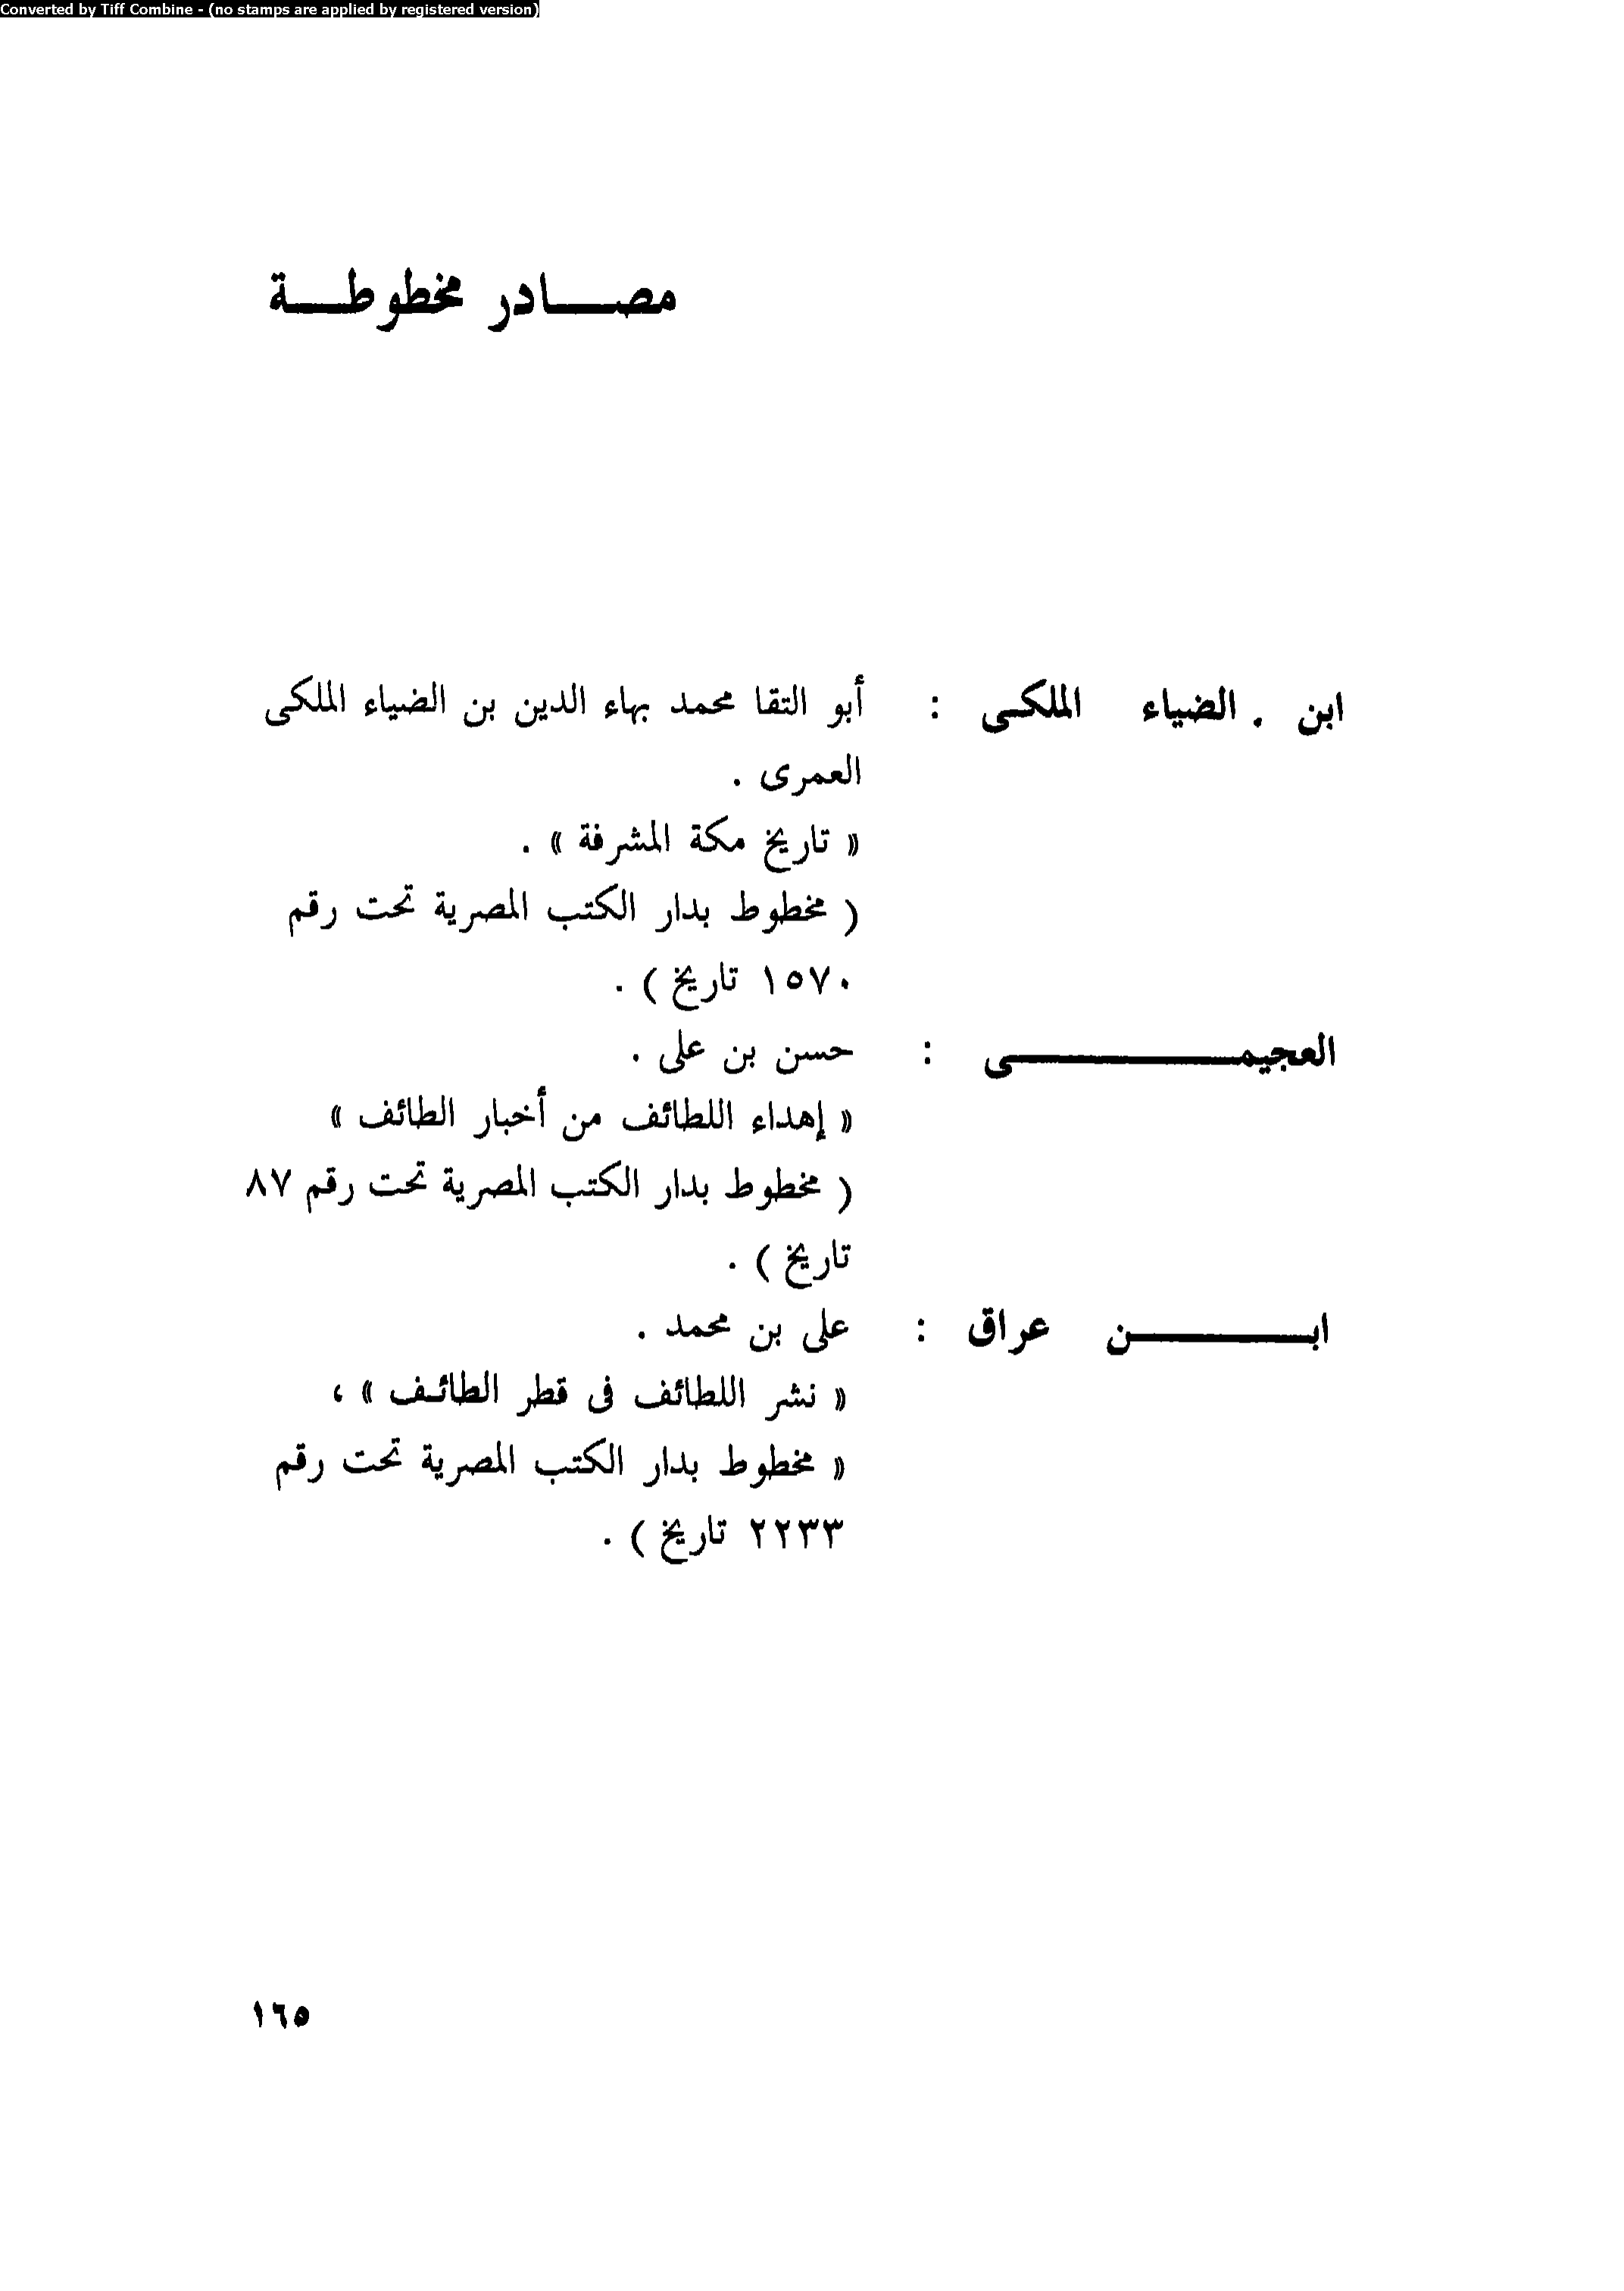 Converted by Tiff Combine - (no stamps are applied by registered version)
مصادر مخطوطة
ابن . الضياء الملكى : أبو التقا محمد بهاء الدين بن الضياء الملكى
العمرى .
« تاريخ مكة المشرفة » .
( مخطوط بدار الكتب المصرية تحت رقم
١٥٧٠ تاريخ ) .
العجيمى : حسن بن على .
« إهداء اللطائف من أخبار الطائف »
( مخطوط بدار الكتب المصرية تحت رقم ٨٧
تاريخ ) .
ابن عراق : على بن محمد .
« نشر اللطائف فى قطر الطائف » ،
« مخطوط بدار الكتب المصرية تحت رقم
٢٢٣٣ تاريخ ) .
١٦٥